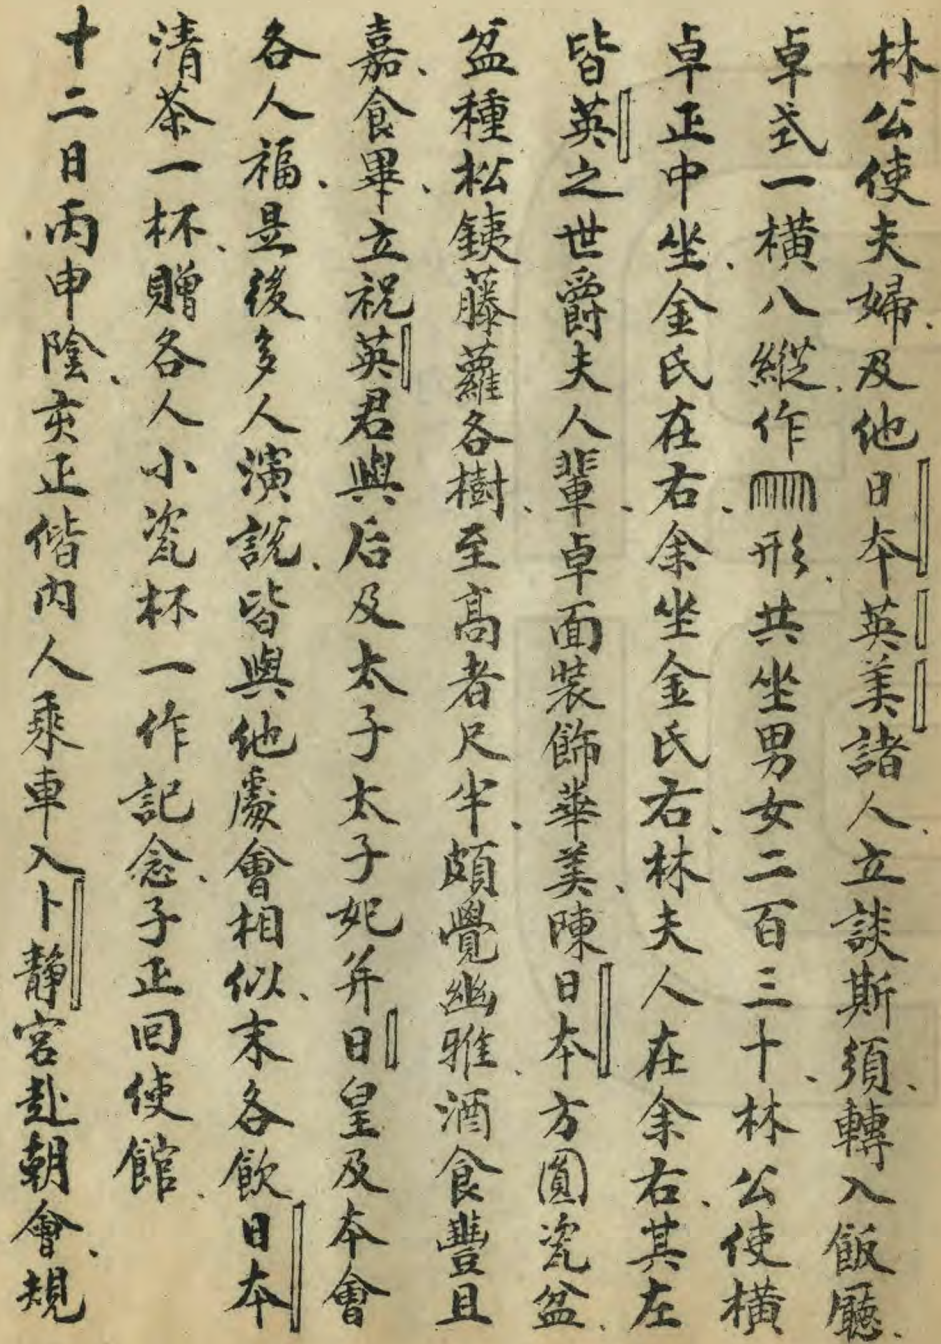 林公使夫婦、及他日本英美諸人、立談斯須、轉入飯廳、
卓式一橫八縱、作形、共坐男女二百三十、林公使橫
卓正中坐、金氏在右、余坐金氏右、林夫人在余右、其左
皆英之世爵夫人輩、卓面裝飾華美、陳日本方圓瓷盆、
盆種松銕藤蘿各樹、至高者尺半、頗覺幽雅、酒食豐且
嘉、食畢、立祝英君與后及太子太子妃并日皇及本會
各人福、是後多人演説、皆與他處會相似、末各飲日本
清茶一杯、贈各人小瓷杯一作記念、子正回使館、
十二日丙申陰、亥正偕內人乘車入卜靜宮赴朝會、規